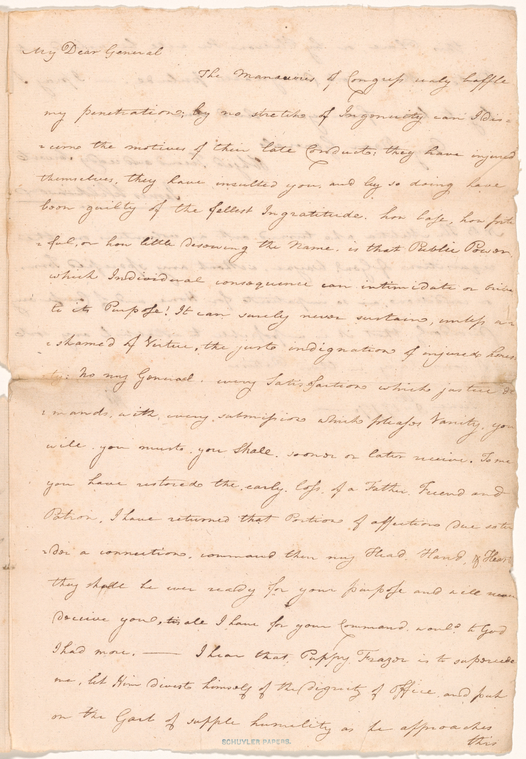 My Dear General
The Manœuvres of Congress realy baffle
my penetration, by no stretch of Ingenuity can I dis-
-cerne the motives of their late Conduct, they have injured
themselves, they have insulted you, and by so doing have
been guilty of the fellest Ingratitude. how base, how piti
-ful, or how little deserving the Name, is that Public Power,
which Individual consequence can intimidate or bribe
to its Purpose! It can surely never sustain, unless
-shamed of Virtue, the just indignation of injured honor,
No my General. every Satisfaction which justice de
-mands, with every submission which pleases Vanity, you
will. you must, you Shall. sooner or later receive. To me
you have restored the early loss of a Father Friend and
Patron, I have returned that Portion of affection due
a connection. command then my Head Hand, & Heart
they shall be ever ready for your purpose and will never
deceive you, tis all I have for your Command. would to God
I had more. — I hear that Puppy Frazor is to supercede
me, let Him divest himself of the dignity of Office, and put
on the Garb of supple humility as he approaches
this
SCHUYLER PAPERS.